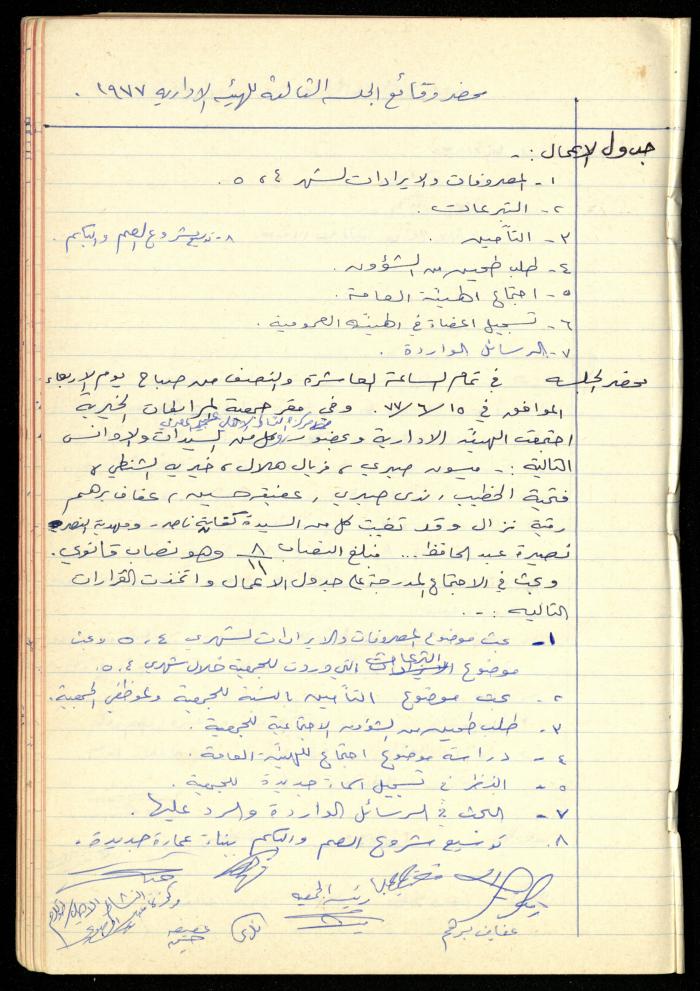 محضر وقائع الجلسة الثالثة للهيئة الادارية ١٩٧٧ .
جدول الاعمال : -
١- المصروفات والايرادات لشهر ٤ ، ٥ .
٢- التبرعات .
٣- التأمين .
٨- توسيع مشروع الصم والبكم .
٤- طلب طحين من الشؤون .
٥- اجتماع الهيئة العامة .
٦- تسجيل اعضاء في الهيئة العمومية .
٧- الرسائل الواردة .
محضر الجلسة في تمام الساعة العاشرة والنصف من صباح يوم الاربعاء
الموافق في ١٥/٦/٧٧. وفي مقر جمعية المرابطات الخيرية
اجتمعت الهيئة الادارية وبحضور كل من السيدات والاوانس
التالية : - ميسون صبري ، فريال هلال ، خيرية الشنطي ،
فتحية الخطيب ، ندى صبري ، عفيفة حسين ، عفاف برهم
رقية نزال وقد تغيبت كل من السيدة كفاية ناصر -
نصيرة عبد الحافظ ... فبلغ النصاب ٨/١١ وهو نصاب قانوني .
وبحث في الاجتماع المدرجة على جدول الاعمال واتخذت القرارات
التالية : - .
١- بحث موضوع المصروفات والايرادات لشهري ٤ ، ٥ وبحث
موضوع التبرعات التي وردت للجمعية خلال شهري ٤ ، ٥ .
٢- بحث موضوع التأمين بالنسبة للجمعية وموظفي الجمعية .
٣- طلب طحين من الشؤون الاجتماعية للجمعية .
٤- دراسة موضوع اجتماع للهيئة العامة .
٥- النظر في تسجيل اسماء جديدة للجمعية .
٧- البحث في الرسائل الواردة والرد عليها .
٨. توسيع مشروع الصم والبكم ببناء عمارة جديدة .
رئيسة الجمعية
عفاف برهم
ندى
عفيفة حسين